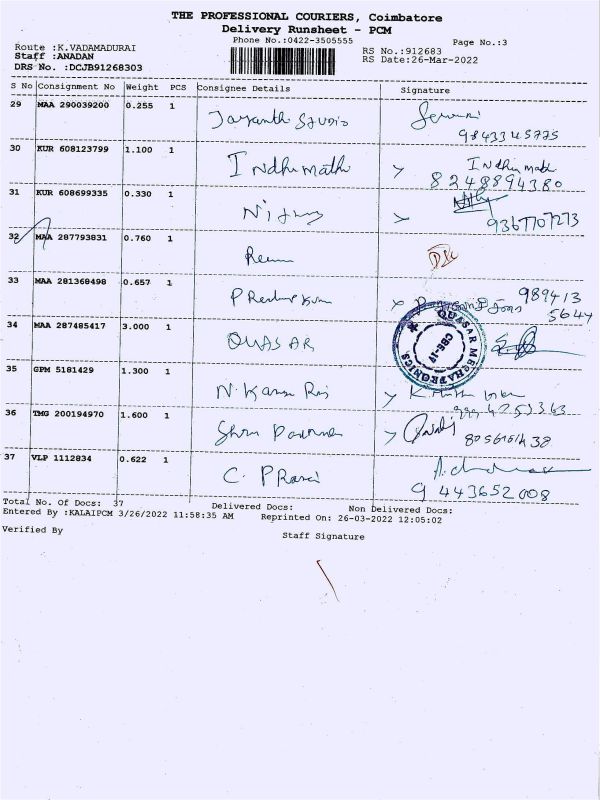 THE PROFESSIONAL COURIERS, Coimbatore
Delivery Runsheet - PCM
Phone No.:0422-3505555
Page No.:3
Route :K.VADAMADURAI
Staff :ANADAN
DRS No. :DCJB91268303
RS No.:912683
RS Date:26-Mar-2022
S No Consignment No Weight PCS Consignee Details Signature
29 MAA 290039200 0.255 1 Jayanthi Studio
9843345775
30 KUR 608123799 1.100 1 Indhumathi Indhumathi
8248894380
31 KUR 608699335 0.330 1
9367707273
32 MAA 287793831 0.760 1 D/L
33 MAA 281368498 0.657 1 989413
5644
34 MAA 287485417 3.000 1 QUASAR
QUASAR MECHATRONICS
CBE-17
35 GPM 5181429 1.300 1 N. Karan Raj
36 TMG 200194970 1.600 1
37 VLP 1112834 0.622 1 C. P Ravi
9443652008
Total No. Of Docs: 37 Delivered Docs: Non Delivered Docs:
Entered By :KALAIPCM 3/26/2022 11:58:35 AM Reprinted On: 26-03-2022 12:05:02
Verified By Staff Signature